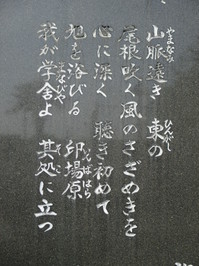 山脈遠き 東の
尾根吹く風のさざめきを
心に深く 聴き初めて
旭を浴びる 印場原
我が学舎よ 其処に立つ